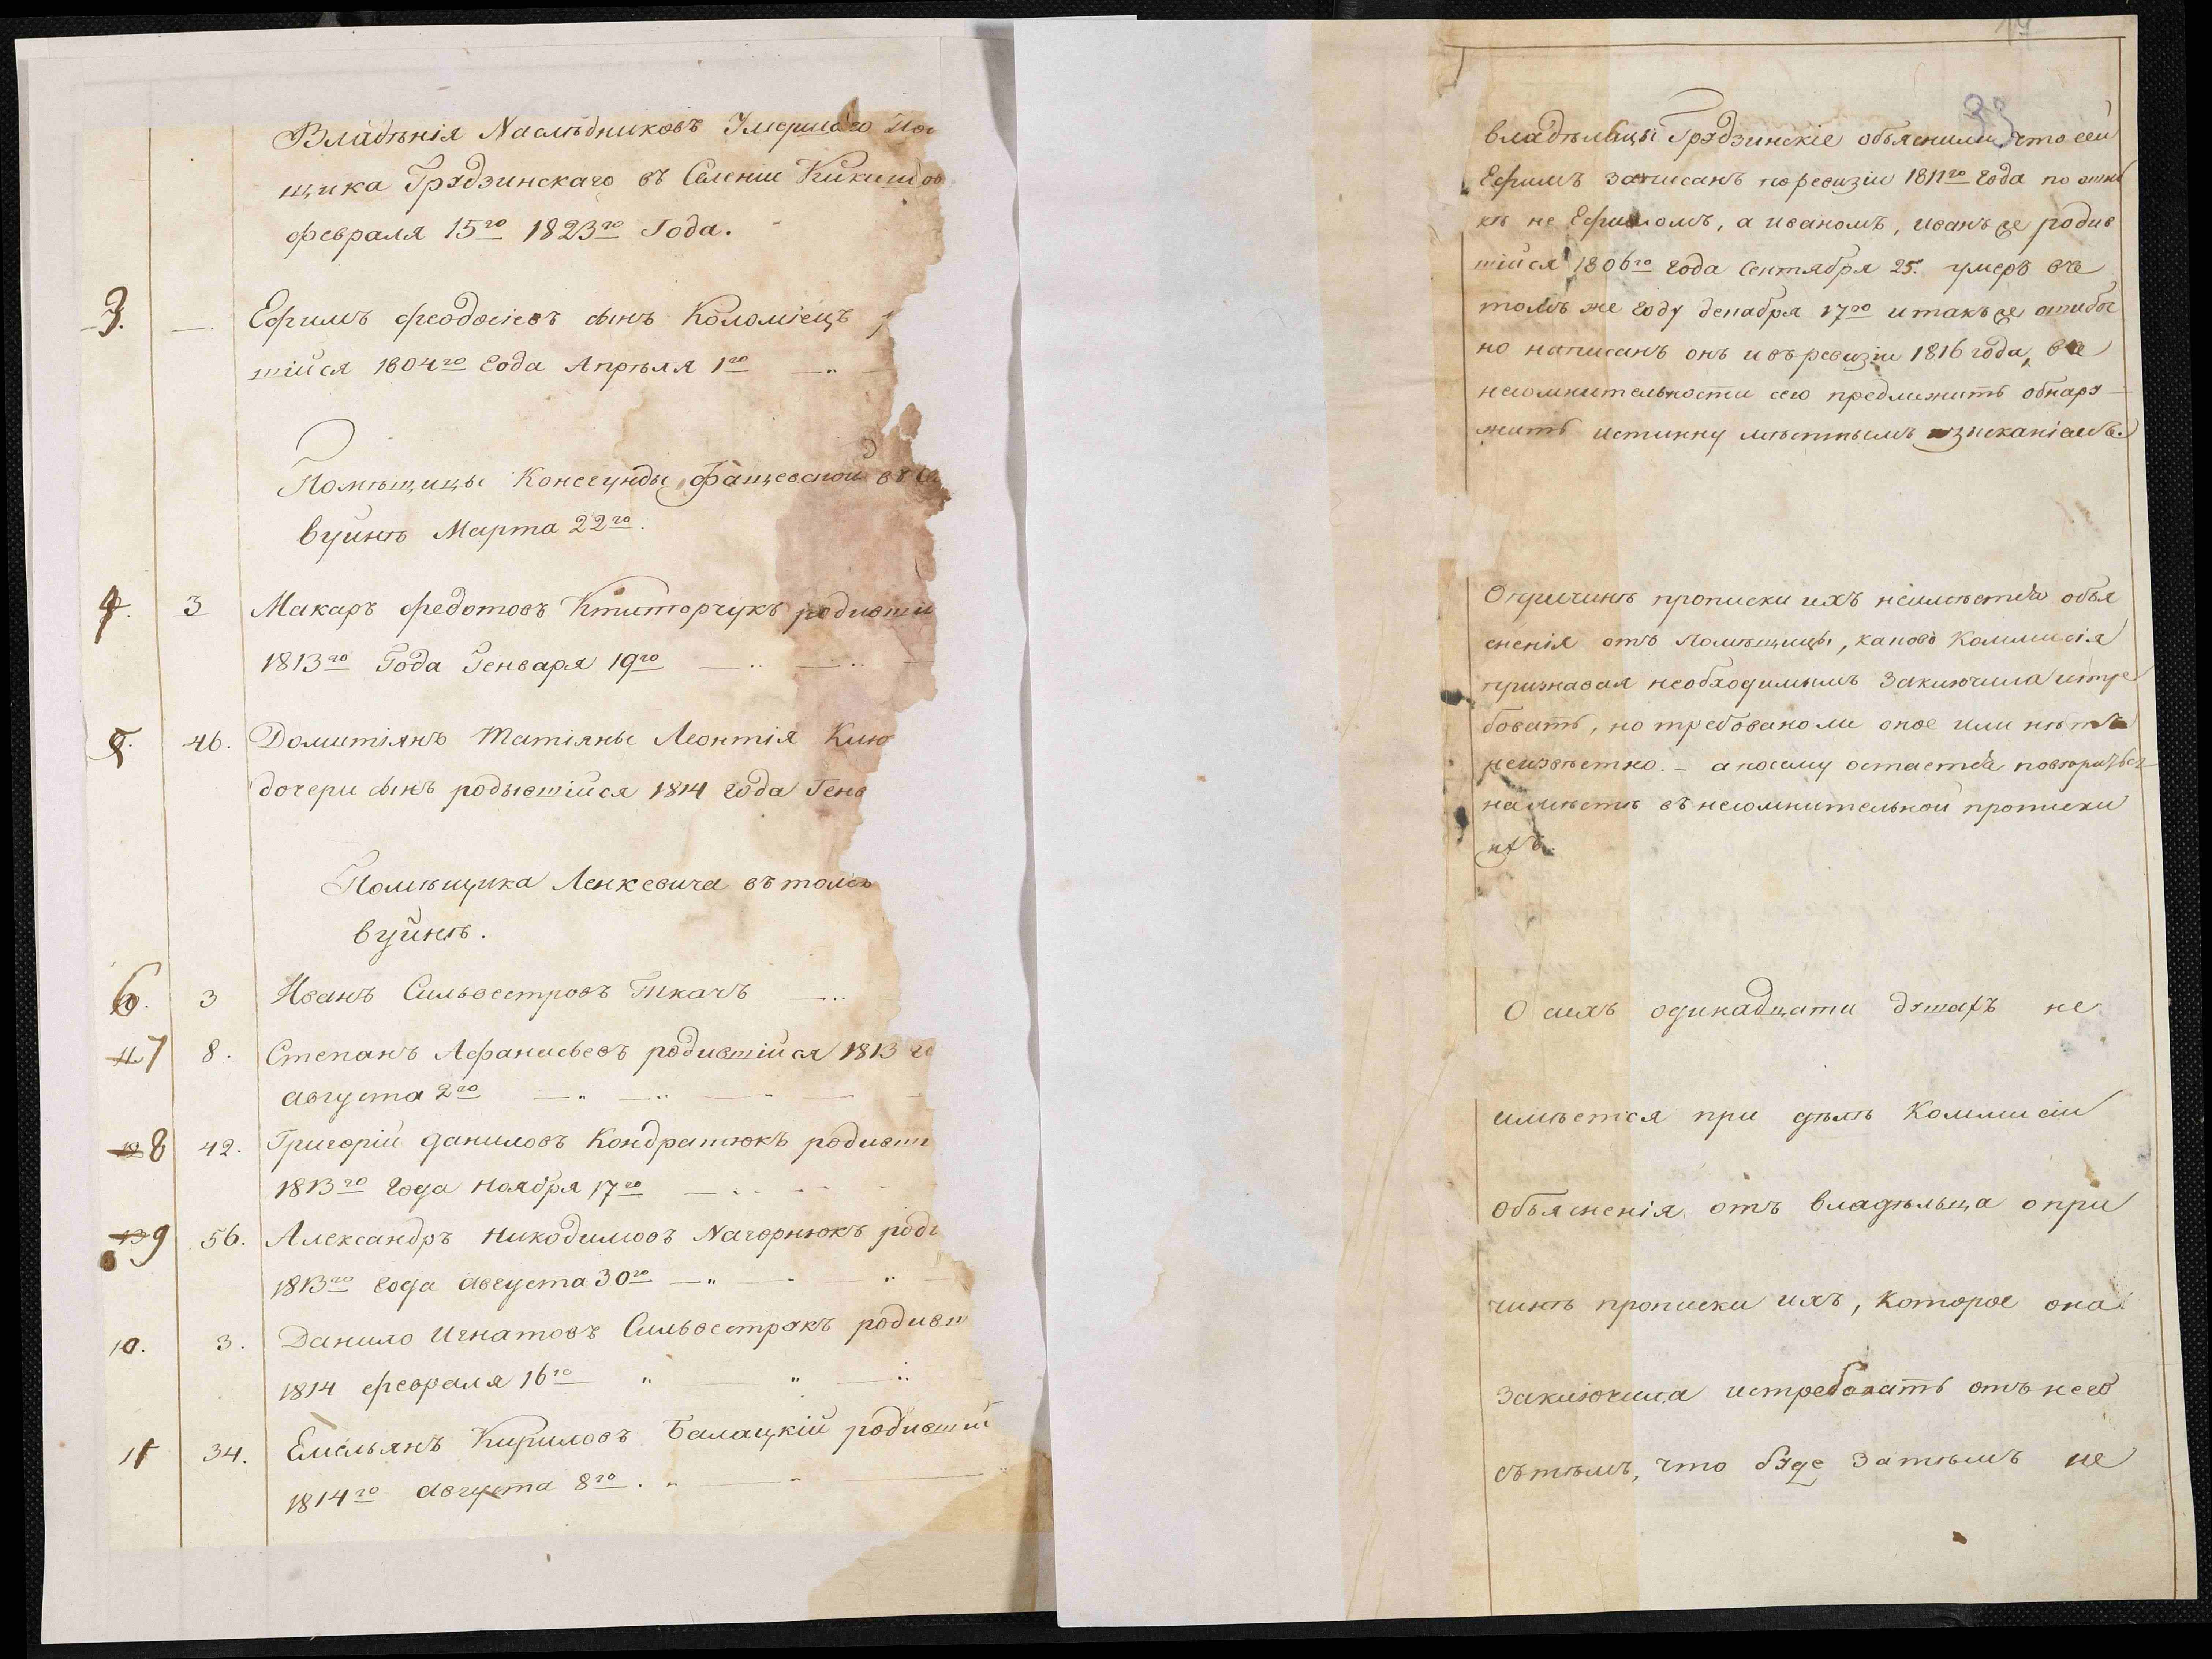 Владѣнія Наслѣдниковъ Умершаго По
щика Грудзинскаго въ Селеніи Кикишов
февраля 15го 1823го Года.
3. — Ефимъ феодосіевъ сынъ Коломіецъ р
шійся 1804го года Апрѣля 1го
Помѣщицы Конегунды Фащевской въ Се
вуинѣ Марта 22го.
4. 3 Макаръ федотовъ Ктиторчукъ родивши
1813го Года Генваря 19го
5. 46. Домитіянъ Татіяны Леонтія Клю
дочери сынъ родывшійся 1814 года Генв
Помѣщика Ленкевича въ томъ
вуйнѣ.
6. 3 Иванъ Сильвестровъ Ткачъ
7 8. Степанъ Афанасьевъ родившійся 1813 го
августа 2го
8 42. Григорій даниловъ Кондратюкъ родивш
1813го года ноября 17го
9 56. Александръ никодимовъ Нагорнюкъ роди
1813го года августа 30го
10. 3. Данило Игнатовъ Сильвеструкъ родивш
1814 февраля 16го
11 34. Емельянъ Кириловъ Балацкій родивший
1814го августа 8го.
33
владѣльцы Грудзинскіе объяснили, что сей
Ефимъ записанъ поревизіи 1811го года по ошиб
кѣ не Ефимомъ, а иваномъ, иванъ же родив
шійся 1806го года Сентября 25. умеръ въ
томъ же году декабря 17го и такъ же ошибоч
но написанъ онъ и въ ревизіи 1816 года, въ
несомнительности сего предлежитъ обнару
жить истинну мѣстнымъ изысканіемъ.
О причинѣ прописки ихъ неимѣется объя
сненія отъ Помѣщицы, каково Коммисія
признавая необходимымъ заключила истре
бовать, но требовано ли оное или нѣтъ
неизвѣстно. – а посему остается повторитьея
на мѣстѣ въ несомнительной прописки
ихъ.
О сихъ одинадцати душахъ не
имѣется при дѣлѣ Коммисіи
объясненія отъ владѣльца о при
чинѣ прописки ихъ, которое она
заключила истребовать отъ него
сътѣмъ, что буде затѣмъ не